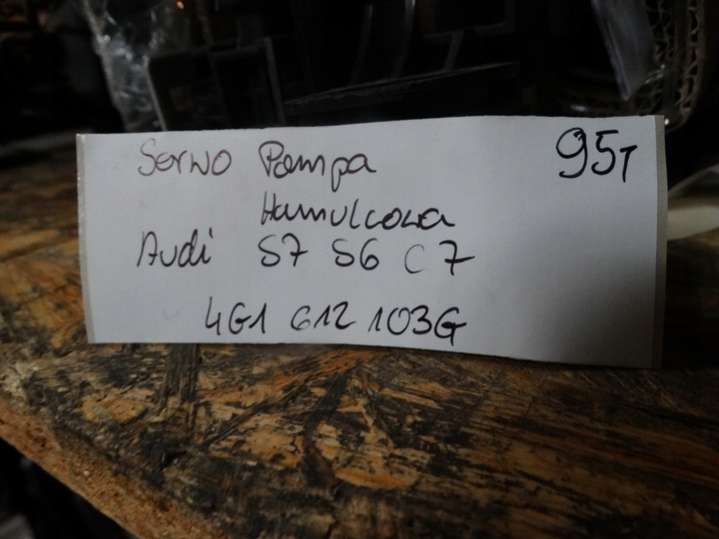 Serwo Pompa 95T
Hamulcowa
Audi S7 S6 C7
4G1 612 103G